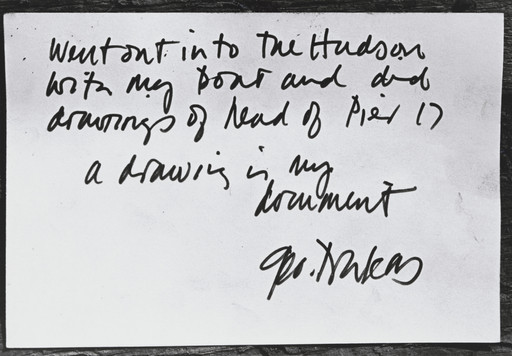 Went out in to The Hudson
with my boat and did
drawings of head of Pier 17
a drawing is my
document
Geo.